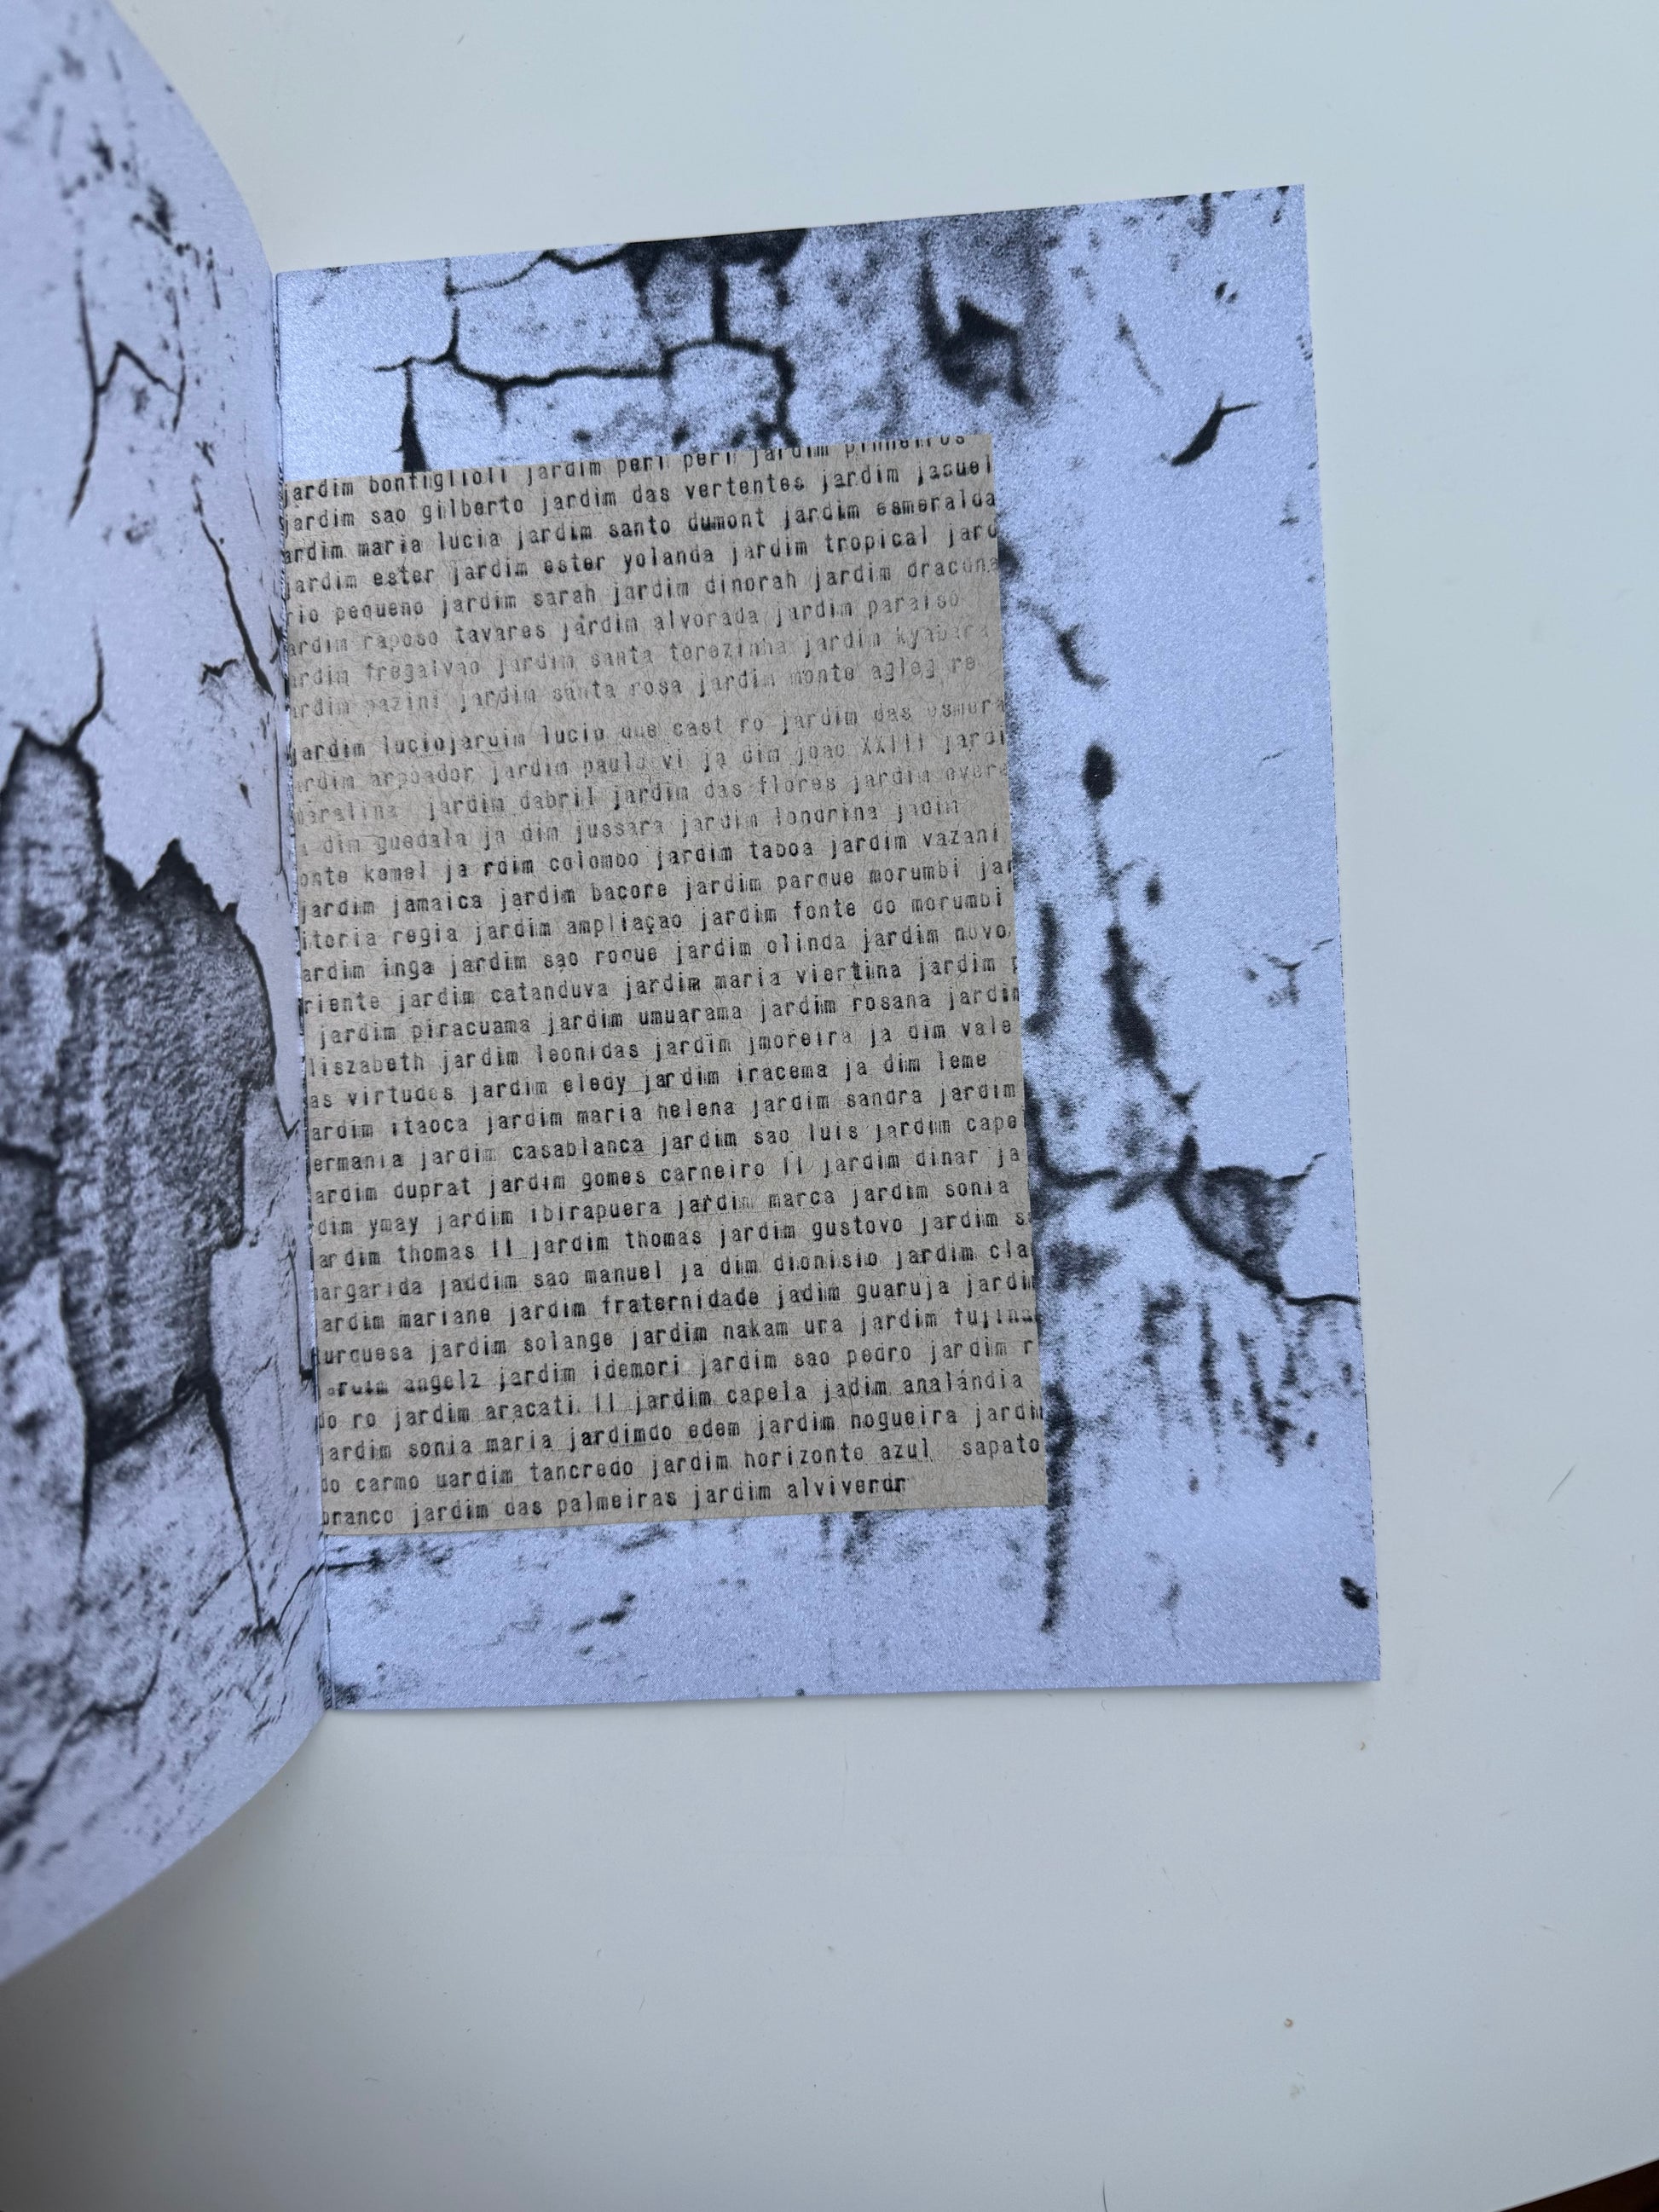 jardim bonfiglioli jardim peri peri jardim pinheiros
jardim sao gilberto jardim das vertentes jardim jaquel
ardim maria lucia jardim santo dumont jardim esmeralda
jardim ester jardim ester yolanda jardim tropical jard
rio pequeno jardim sarah jardim dinorah jardim dracena
ardim raposo tavares jardim alvorada jardim paraiso
ardim jardim santa terezinha jardim
ardim pazini jardim santa rosa jardim monte re
jardim luciojardim lucio cast ro jardim das esmera
ardim arpoador jardim paulo vi ja dim joao XXIII jardi
maralina jardim dabril jardim das flores jardim
dim guedala ja dim jussara jardim londrina jadim
onte kemel ja rdim colombo jardim taboa jardim vazani
jardim jamaica jardim bacore jardim parque morumbi jar
itoria regia jardim ampliaçao jardim fonte do morumbi
ardim inga jardim sao roque jardim olinda jardim novo
riente jardim catanduva jardim maria viertina jardim p
jardim piracuama jardim umuarama jardim rosana jardim
liszabeth jardim leonidas jardim jmoreira ja dim vale
as virtudes jardim eledy jardim iracema ja dim leme
ardim itaoca jardim maria helena jardim sandra jardim
ermania jardim casablanca jardim sao luis jardim capel
ardim duprat jardim gomes carneiro II jardim dinar ja
dim ymay jardim ibirapuera jardim marca jardim sonia
ardim thomas II jardim thomas jardim gustovo jardim s
argarida jaddim sao manuel ja dim dionisio jardim cla
ardim mariane jardim fraternidade jadim guaruja jardim
urquesa jardim solange jardim nakam ura jardim
angelz jardim idemori jardim sao pedro jardim r
do ro jardim aracati II jardim capela jadim analándia
jardim sonia maria jardimdo edem jardim nogueira jardim
do carmo uardim tancredo jardim horizonte azul sapato
branco jardim das palmeiras jardim alviverdr